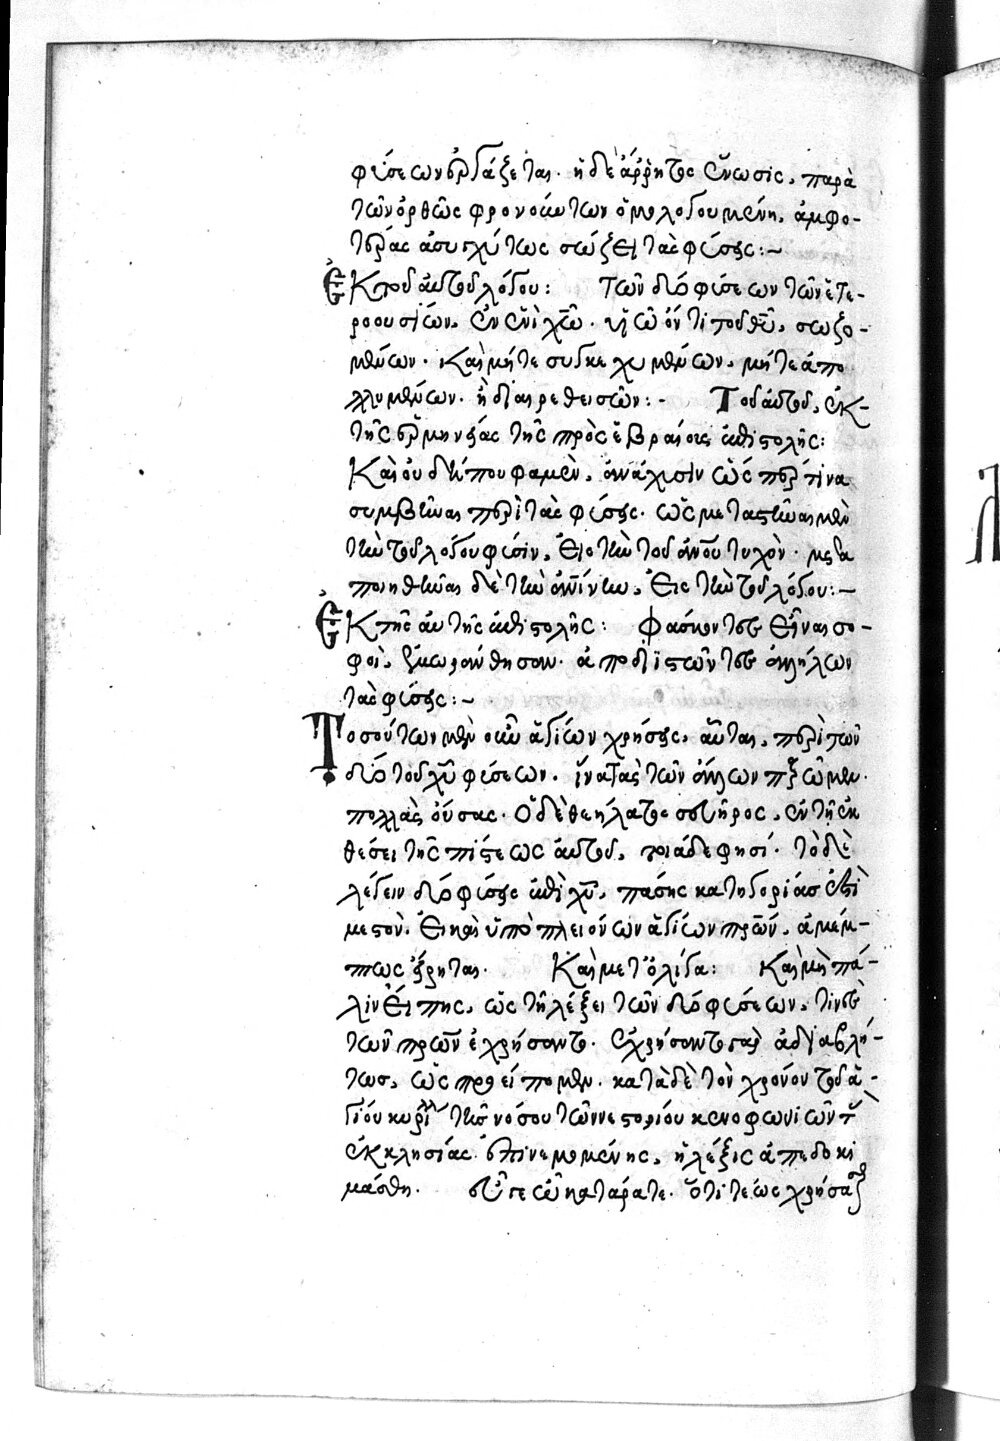 φύσεων ἐργάζεται· ἡ δὲ ἄρρητος ἕνωσις, παρὰ
τῶν ὀρθῶς φρονούντων ὁμολογουμένη, ἀμφο-
τέρας ἀσυγχύτως σώζει τὰς φύσεις:~
Ἐκ τοῦ αὐτοῦ λόγου: Τῶν δύο φύσεων τῶν ἑτε-
ροουσίων, ἐν ἑνὶ χ(ριστ)ῶ· υἱῶ ὄντι τοῦ θ(εο)ῦ, σωζο-
μένων· καὶ μήτε συγκεχυμένων, μήτε ἀπο
λλυμένων· ἢ διαιρεθεισῶν:- Τοῦ αὐτοῦ, ἐκ
τῆς ἑρμηνείας τῆς πρὸς ἑβραίους ἐπιστολῆς:
Καὶ οὐ δήπου φαμὲν, ἀνάχυσιν ὥς περ τινα
συμβῆναι περὶ τὰς φύσεις· ὡς μεταστῆναι μὲν
τὴν τοῦ λόγου φύσιν, εἰς τὴν τοῦ ἀν(θρώπ)ου τυχὸν· μετα
ποιηθῆναι δὲ τὴν ἀν(θρωπ)ίνην, εἰς τὴν τοῦ λόγου:~
Ἐκ τῆς αὐτῆς ἐπιστολῆς: Φάσκοντες εἶναι σο-
φοὶ, ἐμωράνθησαν· ἀποδιιστῶντες ἀλλήλων
τὰς φύσεις:~
Τοσούτων μὲν οὖν ἁγίων χρήσεις, αὗται, περὶ τῶν
δύο τοῦ χ(ριστο)ῦ φύσεων· ἵνα τὰς τῶν ἄλλων παρῶμεν·
πολλὰς οὔσας· Ὁ δὲ θεήλατος σευῆρος, ἐν τῇ ἐκ
θέσει τῆς πίστεως αὐτοῦ, τοιάδε φησί· τὸ δὲ
λέγειν δύο φύσεις ἐπὶ χ(ριστο)ῦ, πάσης κατηγορίας ἐστὶ
μεστὸν, εἰ καὶ ὑπὸ πλειόνων ἁγίων π(ατέ)ρων, ἀμέμ-
πτως εἴρηται. Καὶ μετ' ὀλίγα: Καὶ μὴ πά-
λιν εἴπης, ὡς τῇ λέξει τῶν δύο φύσεων, τινὲς
τῶν π(ατέ)ρων ἐχρήσαντο· ἐχρήσαντο γὰρ ἀδιαβλή-
τως, ὡς προείπομεν· κατὰ δὲ τὸν χρόνον τοῦ ἁ-
γίου κυρίλλ, τῆς νόσου τῶν νεστορίου κενοφωνιῶν τ
ἐκκλησίας ἐπινεμομένης, ἡ λέξις ἀπεδοκι
μάσθη. σευῆρε ὦ κατάρατε· ὅτι τέως χρήσασ